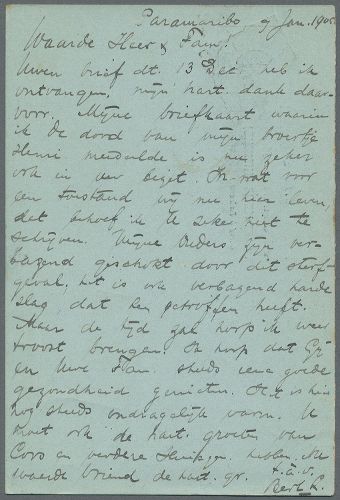 Paramaribo 9 Jan. 1905
Waarde Heer & Fam!
Uwen brief dt. 13 Dec. heb ik
ontvangen, mijn hart. dank daar-
voor. Mijne briefkaart waarin
ik de dood van mijn broertje
Henri meldde is nu zeker
ook in uw bezit. In wat voor
een toestand wij nu hier leven,
dat behoef ik U zeker niet te
schrijven. Mijne Ouders zijn ver-
bazend geschokt door dit sterf-
geval, het is ook verbazend harde
slag dat hen getroffen heeft.
Maar de tijd zal hoop ik weer
troost brengen. Ik hoop dat Gij
en Uwe Fam. steeds eene goede
gezondheid genieten. Het is hier
nog steeds ondragelijk warm. U
moet ook de hart. groeten van
Coos en verdere hebben. Met
waarde vriend de hart. gr.
t. à. v.
Bert